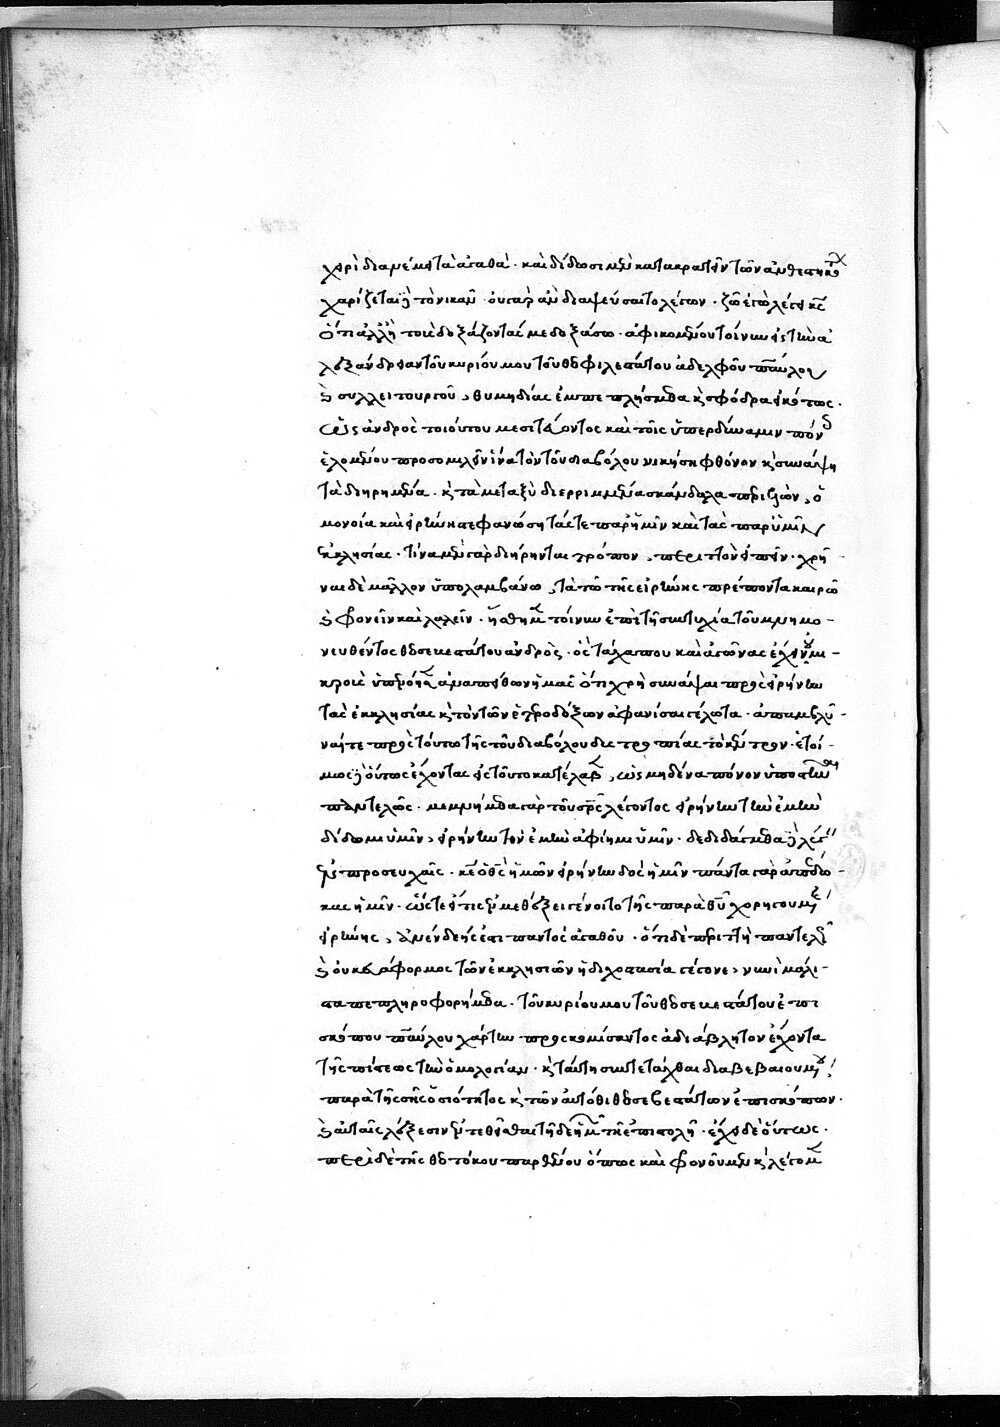 χειρὶ διαμένει τὰ ἀγαθά· καὶ δίδωσι μὲν κατακρατεῖν τῶν ἀνθεστηκό
χαρίζεται δὲ τὸ νικᾶν· οὐ γὰρ ἂν διαψεύσαιτο λέγων· ζῶ ἐγὼ λέγει κς
ὅτι ἀλλ' ἢ τοὺς δοξάζοντάς με δοξάσω· ἀφικομένου τοίνυν εἰς τὴν ἀ
λεξάνδρειαν τοῦ κυρίου μου τοῦ θεοφιλεστάτου ἀδελφοῦ παύλου
καὶ συλλειτουργοῦ, θυμηδίας ἐμπεπλήσμεθα καὶ σφόδρα εἰκότως·
ὡς ἀνδρὸς τοιούτου μεσιτεύοντος καὶ τοῖς ὑπὲρ δύναμιν πόν
ἑλομένου προσομιλεῖν ἵνα τὸν τοῦ διαβόλου νικήσῃ φθόνον καὶ συνάψῃ
τὰ διῃρημένα· καὶ τὰ μεταξὺ διερριμμένα σκάνδαλα περιελὼν, ὁ
μονοίᾳ καὶ εἰρήνῃ στεφανώσῃ τάς τε παρ' ἡμῖν καὶ τὰς παρ' ὑμῖν
ἐκκλησίας· τίνα μὲν γὰρ διῄρηνται τρόπον, περιττὸν εἰπεῖν· χρῆ
ναι δὲ μᾶλλον ὑπολαμβάνω, τὰ τῷ τῆς εἰρήνης πρέποντα καιρῷ
καὶ φρονεῖν καὶ λαλεῖν· ἥσθημεν τοίνυν ἐπὶ τῇ συντυχίᾳ τοῦ μνημο-
νευθέντος θεοσεβεστάτου ἀνδρός· ὃς τάχα που καὶ ἀγῶνας ἕξειν οὐ μι-
κροὺς ὑπενόησεν ἀναπείθων ἡμᾶς ὅτι χρὴ συνάψαι πρὸς εἰρήνην
τὰς ἐκκλησίας καὶ τὸν τῶν ἑτεροδόξων ἀφανίσαι γέλωτα· ἀπαμβλῦ-
ναί τε πρὸς τούτῳ τῆς τοῦ διαβόλου δυστροπίας τὸ κέντρον· ἑτοί-
μως δὲ οὕτως ἔχοντας εἰς τοῦτο κατέλαβεν, ὡς μηδένα πόνον ὑποστῆναι
παντελῶς· μεμνήμεθα γὰρ τοῦ σρς λέγοντος εἰρήνην τὴν ἐμὴν
δίδωμι ὑμῖν, εἰρήνην τὴν ἐμὴν ἀφίημι ὑμῖν· δεδιδάγμεθα δὲ λέγειν
ἐν προσευχαῖς· κε ὁ θς ἡμῶν εἰρήνην δὸς ἡμῖν πάντα γὰρ ἀπέδω-
κας ἡμῖν· ὥστε εἴ τις ἐν μεθέξει γένοιτο τῆς παρὰ θυ χορηγουμένης
εἰρήνης, ἀνενδεής ἐστι παντὸς ἀγαθοῦ· ὅτι δὲ περιττὴ παντελῶς
καὶ οὐκ εὐάφορμος τῶν ἐκκλησιῶν ἡ διχοστασία γέγονε, νυνὶ μάλι-
στα πεπληροφορήμεθα· τοῦ κυρίου μου τοῦ θεοσεβεστάτου ἐπι
σκόπου παύλου χάρτην προσκομίσαντος ἀδιάβλητον ἔχοντα
τῆς πίστεως τὴν ὁμολογίαν· καὶ ταύτην συντετάχθαι διαβεβαιουμένου
παρὰ τῆς σῆς ὁσιότητος καὶ τῶν αὐτόθι θεοσεβεστάτων ἐπισκόπων·
καὶ αὐταῖς λέξεσιν ἐντεθεῖσθαι τῇδε ἡμῶν τῇ ἐπιστολῇ· ἔχει δὲ οὕτως·
περὶ δὲ τῆς θεοτόκου παρθένου ὅπως καὶ φρονοῦμεν καὶ λέγομεν